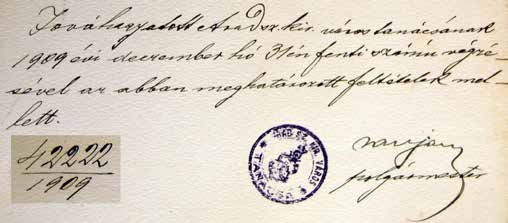 Jóváhagyatott Arad sz. kir. város tanácsának
1909 évi deczember hó 31én fenti számú végzé-
sével az abban meghatározott feltételek mel-
lett.
42222
1909
ARAD SZ. KIR. VÁROS
TANÁCSA
polgármester